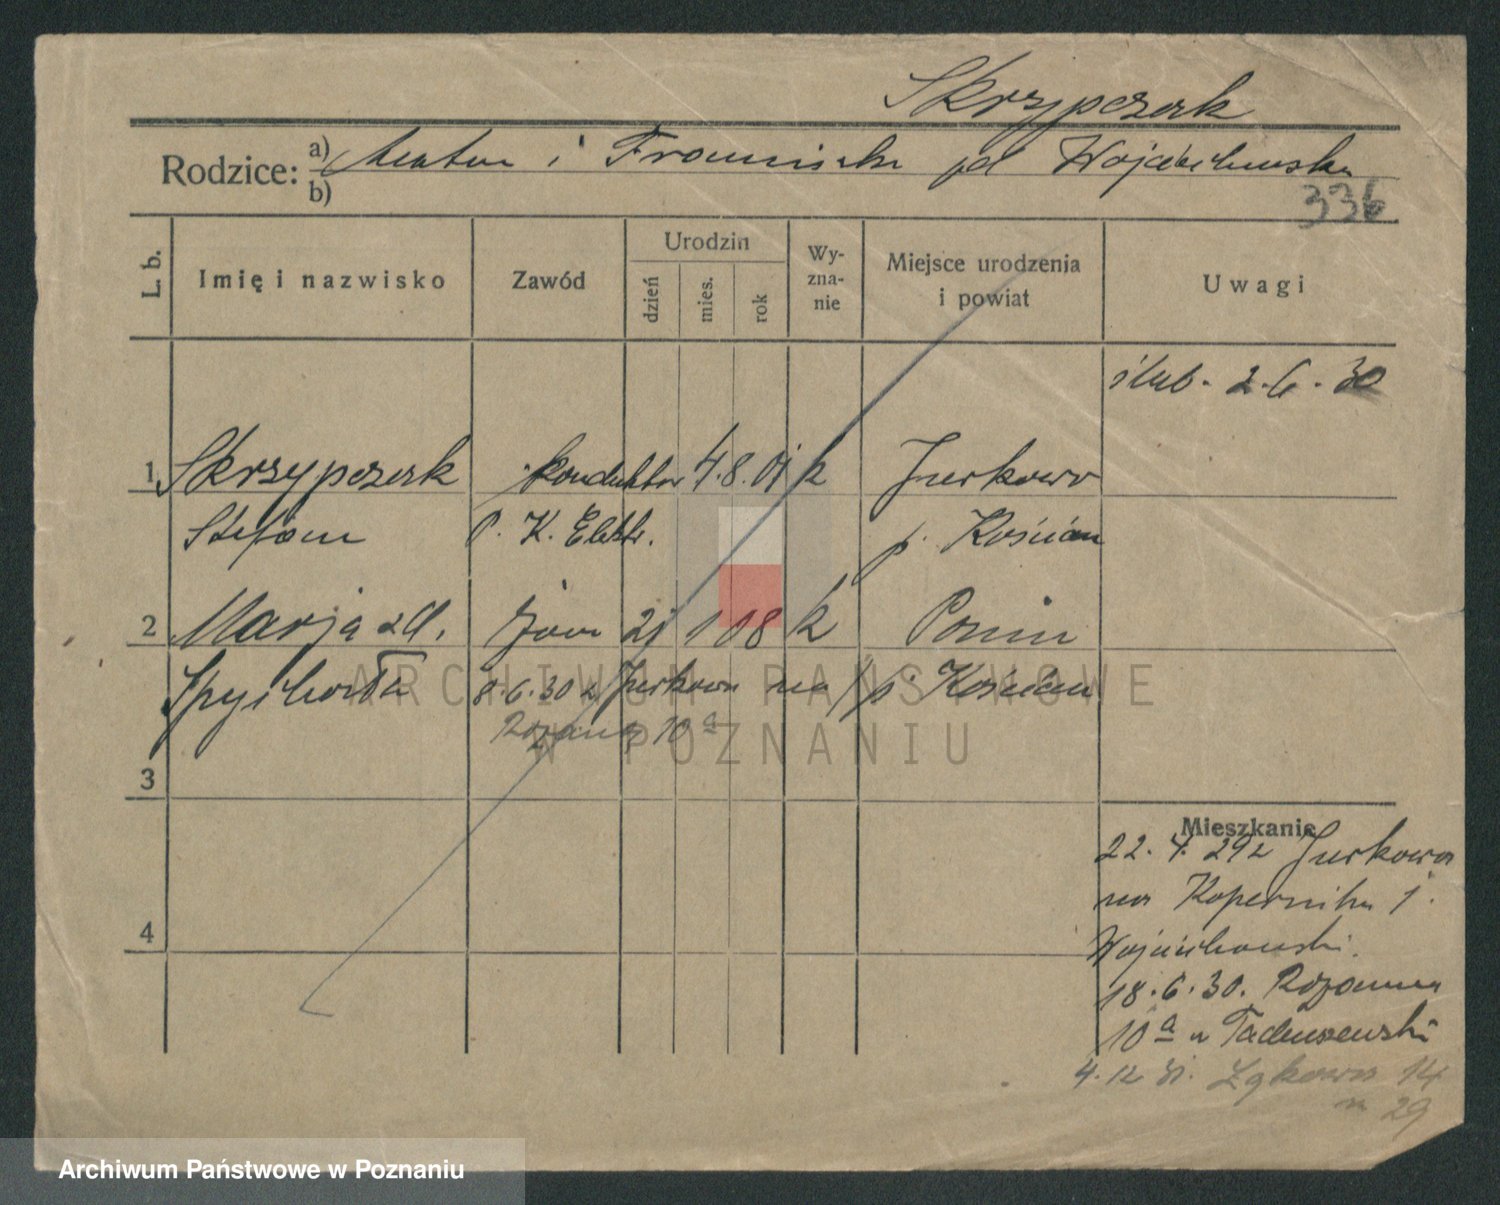 Skrzypczak
Rodzice: a) i Franciszka zd Wojciechowska
b)
336
L. b.
Imię i nazwisko
Zawód
Urodzin
dzień
mies.
rok
Wy-
zna-
nie
Miejsce urodzenia
i powiat
Uwagi
ślub. 2.6.30
1 Skrzypczak konduktor 4.8.01 k Jurkowo
Stefan P. K. Elektr. p. Kościan
2 Marja zd. żona 21 1 08 k Ponin
Spychała 8.6.30 z Jurkowa na p. Kościan
Różana 10a
3
4
Mieszkanie
22.4.29 z Jurkowa
na Kopernika 1.
Wojciechowski.
18.6.30. Różanna
10a u Tadeuszewski
4.12.31. Łąkowa 14
m 29
ARCHIWUM PAŃSTWOWE
W POZNANIU
Archiwum Państwowe w Poznaniu